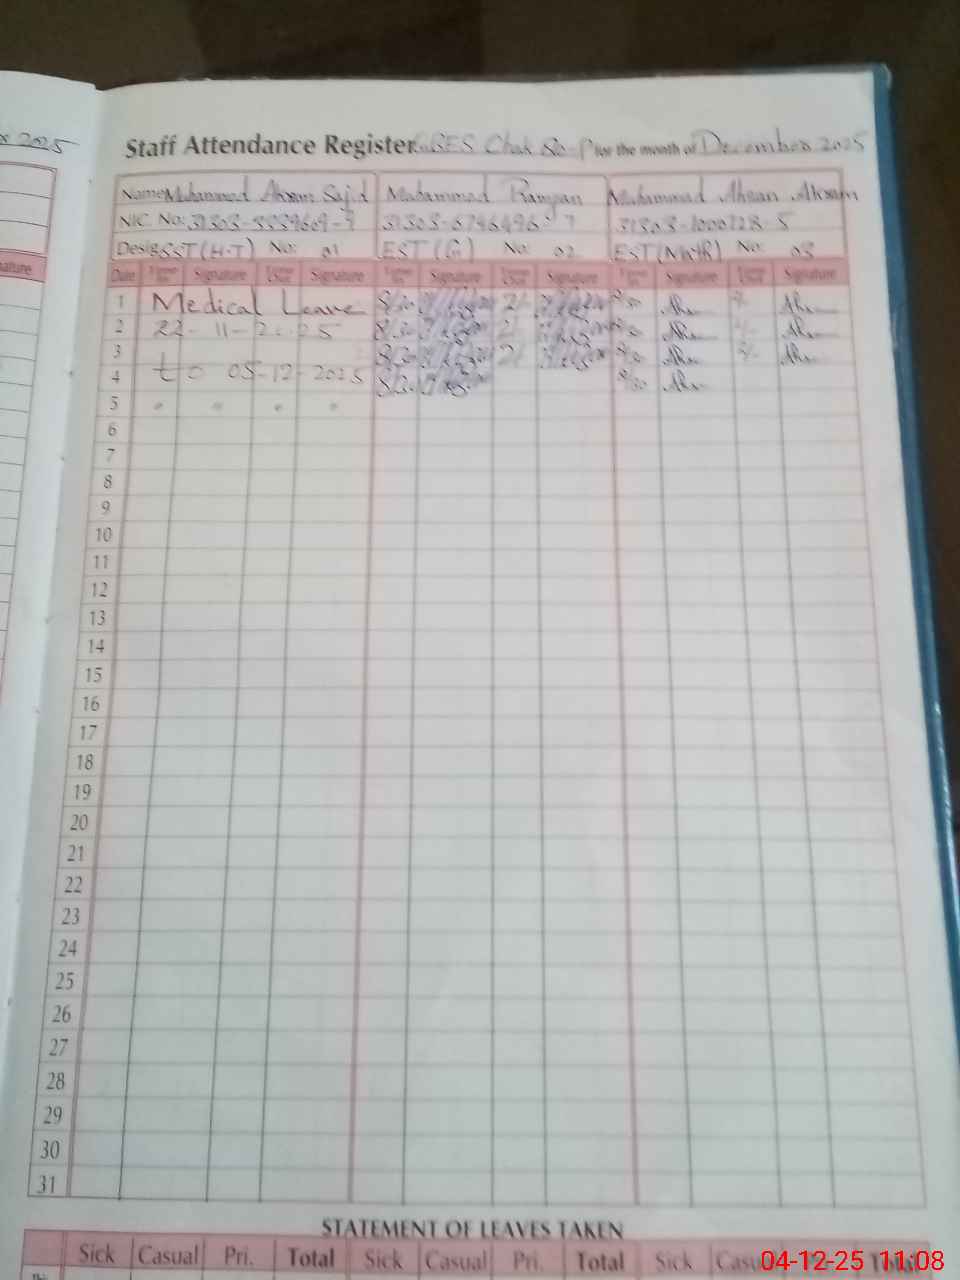 2025
Staff Attendance Register GBES Chak 80-P for the month of December 2025
Name Muhammad Akram Sajid Muhammad Ramzan Muhammad Ahsan Akram
NIC. No: 31303- 31303-6746496-7 31303-1000728-5
Desig: SST (H.T) No: 01 EST (G) No: 02 EST No: 03
nature
Date Time In Signature Time Out Signature Time In Signature Time Out Signature Time In Signature Time Out Signature
1 Medical Leave 8/30 2/- 8/30 2/-
2 22-11-2025 8/30 2/- 8/30 2/-
3 8/30 2/- 8/30 2/-
4 to 05-12-2025 8/30 8/30
5 " " " "
6
7
8
9
10
11
12
13
14
15
16
17
18
19
20
21
22
23
24
25
26
27
28
29
30
31
STATEMENT OF LEAVES TAKEN
Sick Casual Pri. Total Sick Casual Pri. Total Sick Total
04-12-25 11:08